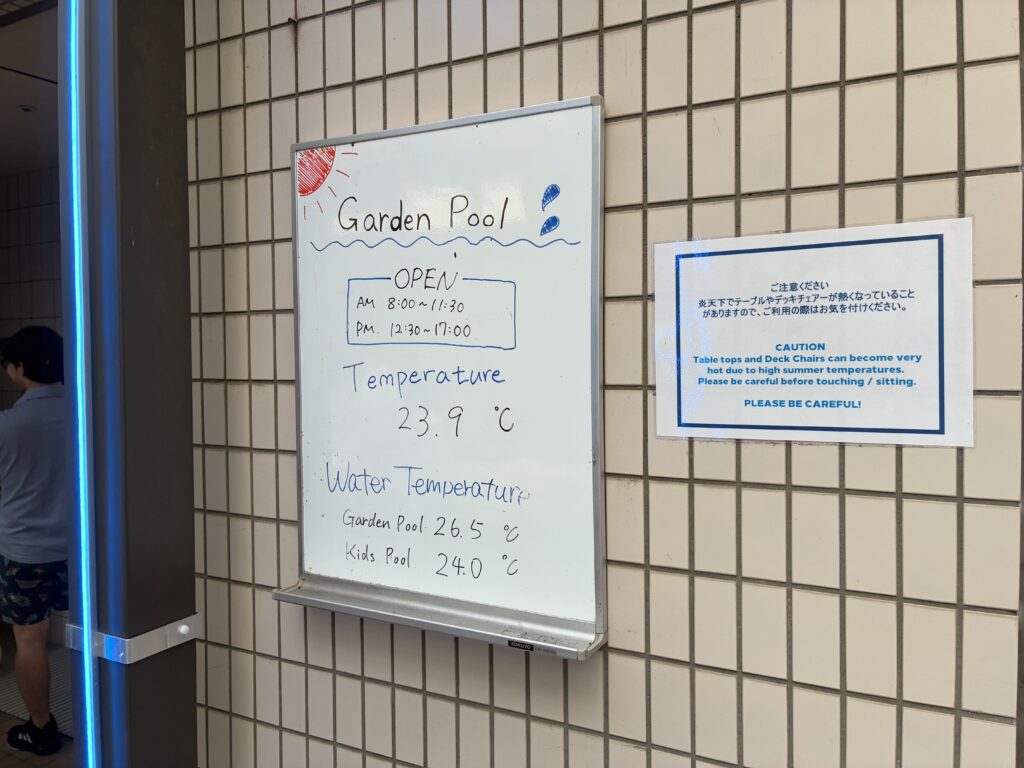 Garden Pool
OPEN
AM 8:00~11:30
PM. 12:30~17:00
Temperature
23.9 ℃
Water Temperature
Garden Pool 26.5 ℃
Kids Pool 24.0 ℃
KOKUYO
ご注意ください
炎天下でテーブルやデッキチェアーが熱くなっていること
がありますので、ご利用の際はお気を付けください。
CAUTION
Table tops and Deck Chairs can become very
hot due to high summer temperatures.
Please be careful before touching / sitting.
PLEASE BE CAREFUL!